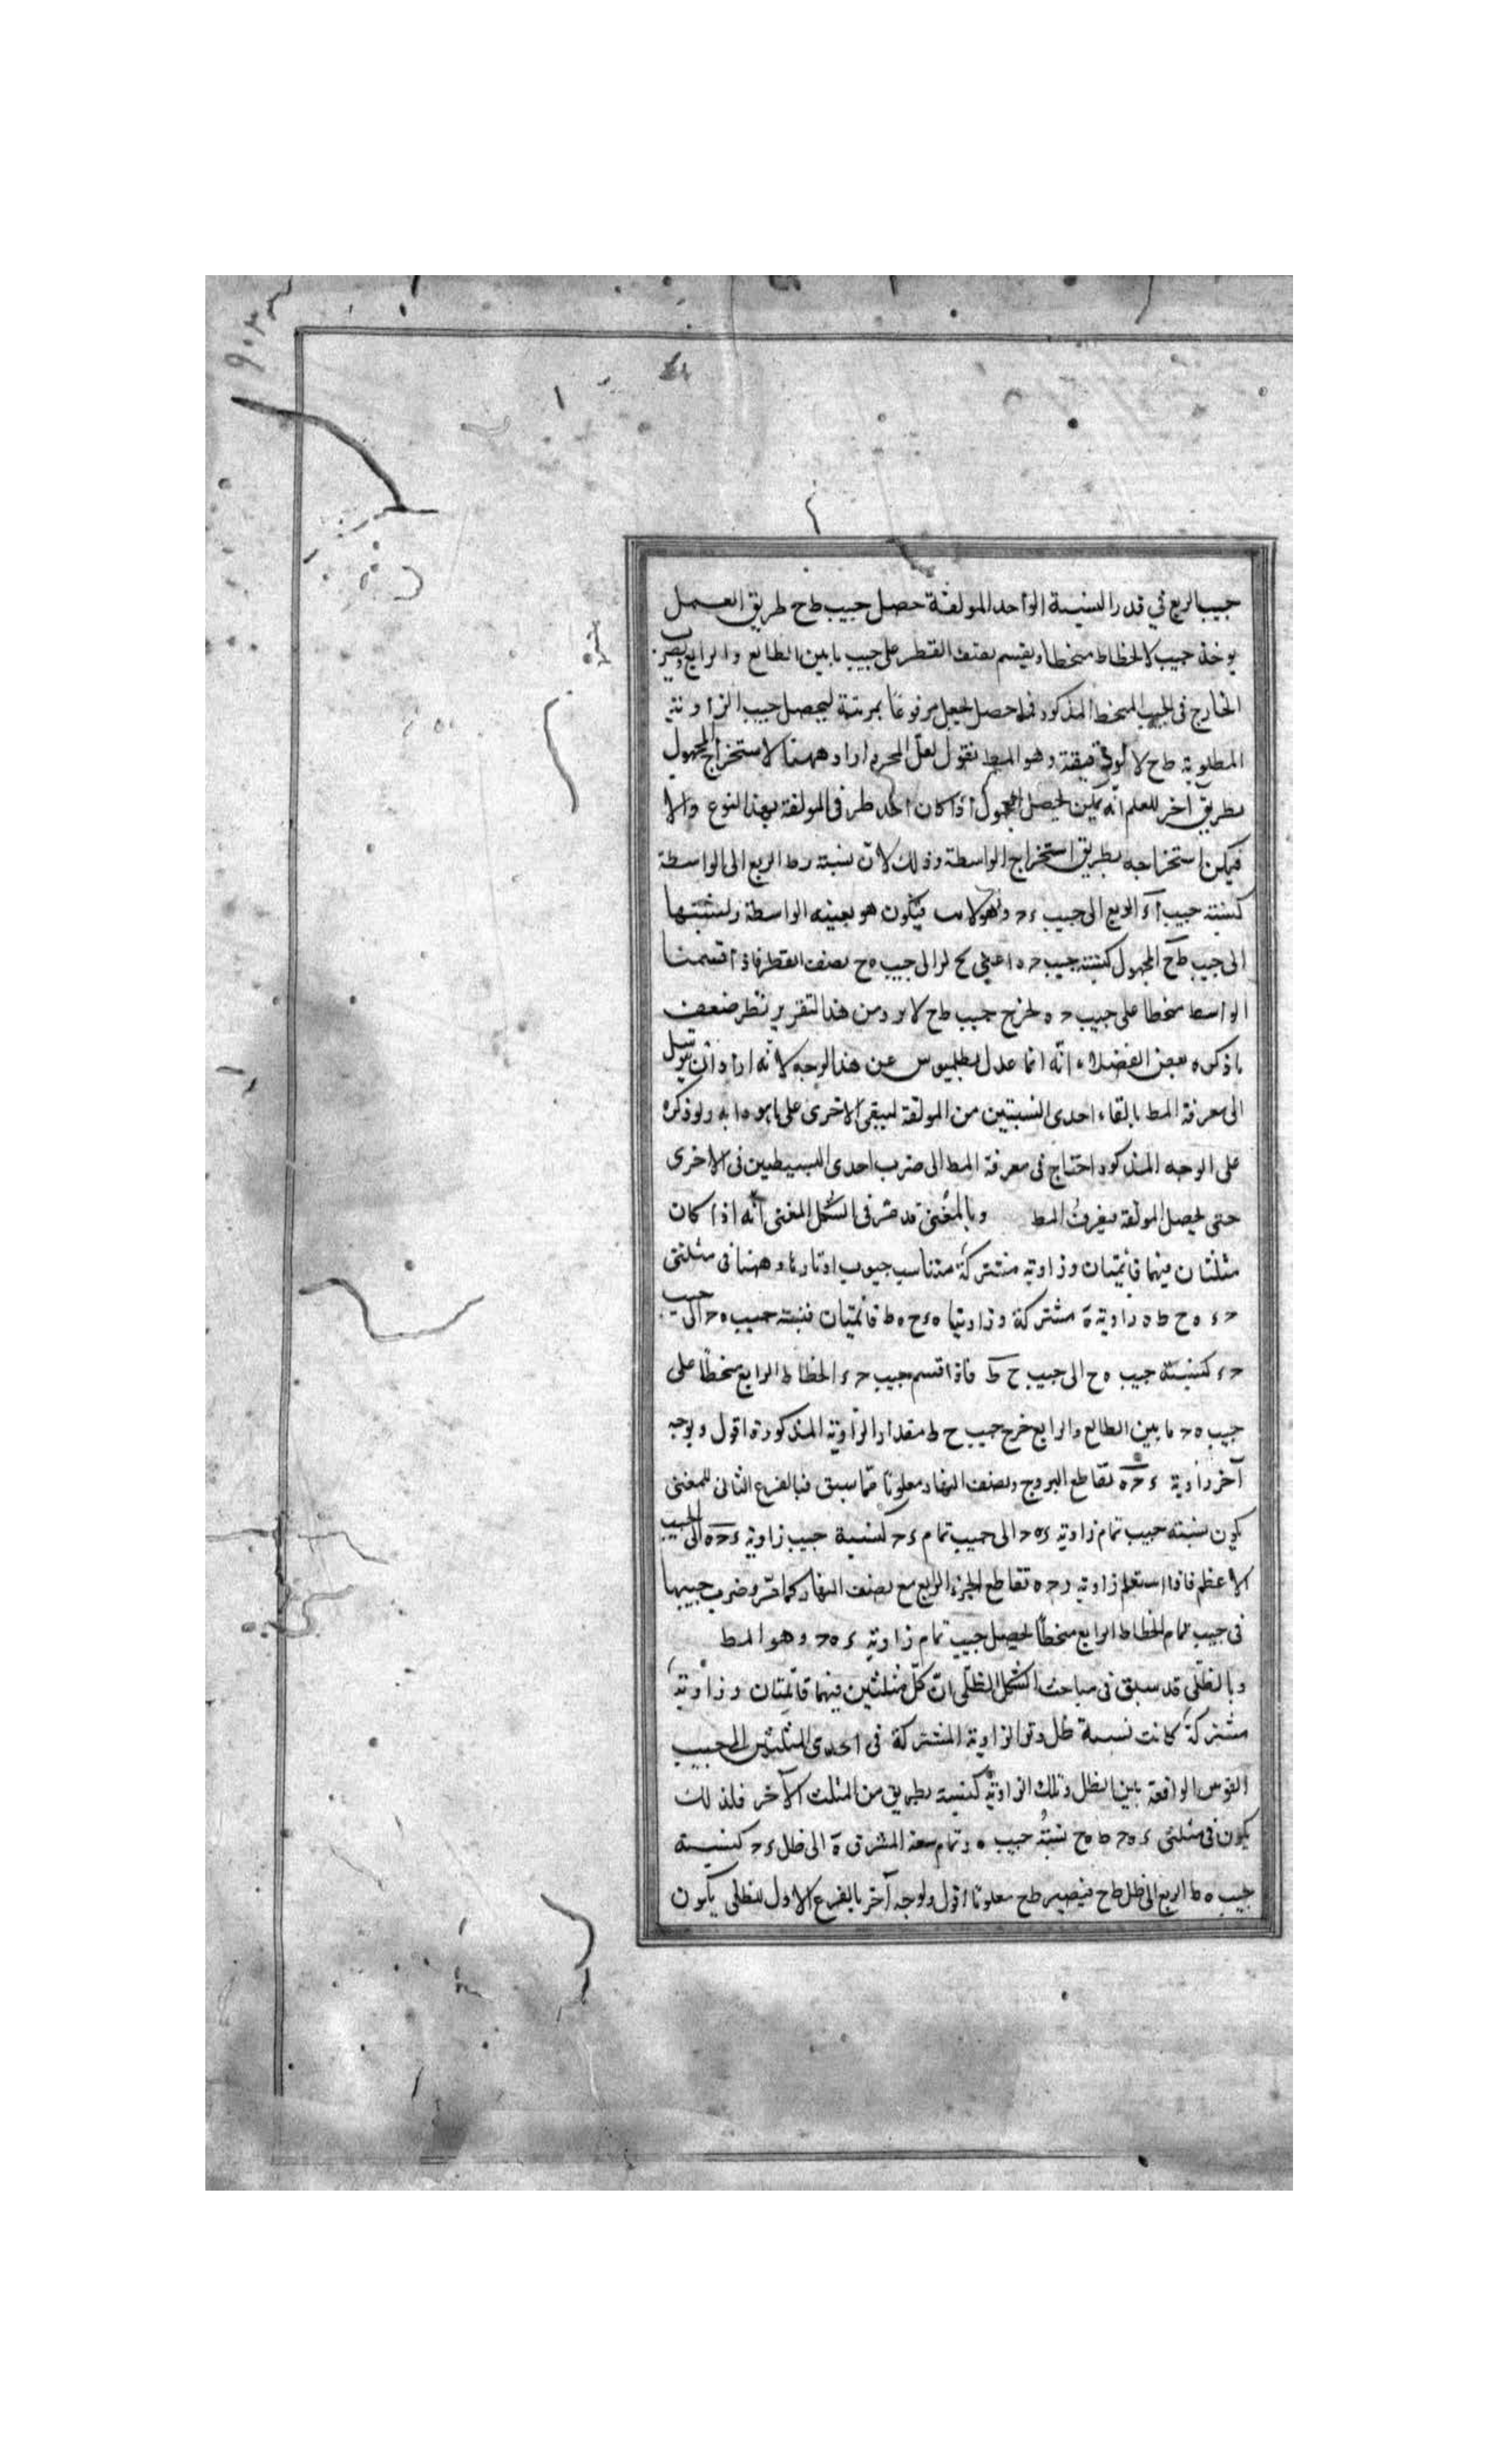 جيب الربع في قدر النسبة الواحد المولفة حصل جيب طح طريق العمل
يوخذ جيب الانحطاط منحطا ويقسم نصف القطر على جيب ما بين الطالع والرابع ويضرب
الخارج في الجيب المنحط المذكور فما حصل يجعل مرفوعا بمرتبة ليحصل جيب الزاوية
المطلوبة طح دقيقة وهو المط نقول لعل المحرر اراد ههنا لاستخراج المجهول
بطريق آخر للعلم انه يمكن تحصيل المجهول اذا كان احد طرفى المولفة بهذا النوع والا
فيمكن استخراجه بطريق استخراج الواسطة وذلك لان نسبة رط الربع الى الواسطة
كنسبة جيب آء الربع الى جيب ءح وهو فيكون هو بعينه الواسطة ونسبتها
الى جيب طح المجهول كنسبة جيب حه اعنى الى جيب هح نصف القطر فاذا قسمنا
الواسط منحطا على جيب حه يخرج جيب طح ومن هذا التقرير نظر ضعف
ما ذكره بعض الفضلاء انه انما عدل بطلميوس عن هذا الوجه لانه اراد ان يتوسل
الى معرفة المط بالقاء احدى النسبتين من المولفة ليبقى الاخرى على ما هو دابه ولو ذكره
على الوجه المذكور احتاج فى معرفة المط الى ضرب احدى البسيطين فى الاخرى
حتى يحصل المولفة فيعرف المط وبالمغنى قد مر فى الشكل المغنى انه اذا كان
مثلثان فيهما قائمتان وزاوية مشتركة متناسب جيوب اوتارها وههنا فى مثلثى
حءه حطه زاوية ه مشتركة وزاويتا هءح هط قائمتيان فنسبة جيب هح الى جيب
حء كنسبة جيب هح الى جيب ح ط فاذا اقسم جيب حء انحطاط الرابع منحطا على
جيب هح ما بين الطالع والرابع خرج جيب ح ط مقدار الزاوية المذكورة اقول وبوجه
آخر زاوية ءحه تقاطع البروج ونصف النهار معلومة مما سبق فبالفرع الثانى للمغنى
يكون نسبة جيب تمام زاوية ءهح الى جيب تمام ءح كنسبة جيب زاوية ءحه الى الجيب
الاعظم فاذا استعلم زاوية ءحه تقاطع الجزء الرابع مع نصف النهار كما مر وضرب جيبها
فى جيب تمام انحطاط الرابع منحطا يحصل جيب تمام زاوية ءهح وهو المط
وبالظلى قد سبق فى مباحث الشكل الظلى ان كل مثلثين فيهما قائمتان وزاوية
مشتركة كانت نسبة ظل وتر الزاوية المشتركة فى احدى المثلثين الى جيب
القوس الواقعة بين الظل وتلك الزاوية كنسبة نظيره من المثلث الآخر فلذلك
يكون فى مثلثى ءهح طهح نسبة جيب ه ء تمام سعة المشرق ة الى ظل ءح كنسبة
جيب هط الربع الى ظل طح فيصير طح معلوما اقول ولوجه آخر بالفرع الاول للظلى يكون